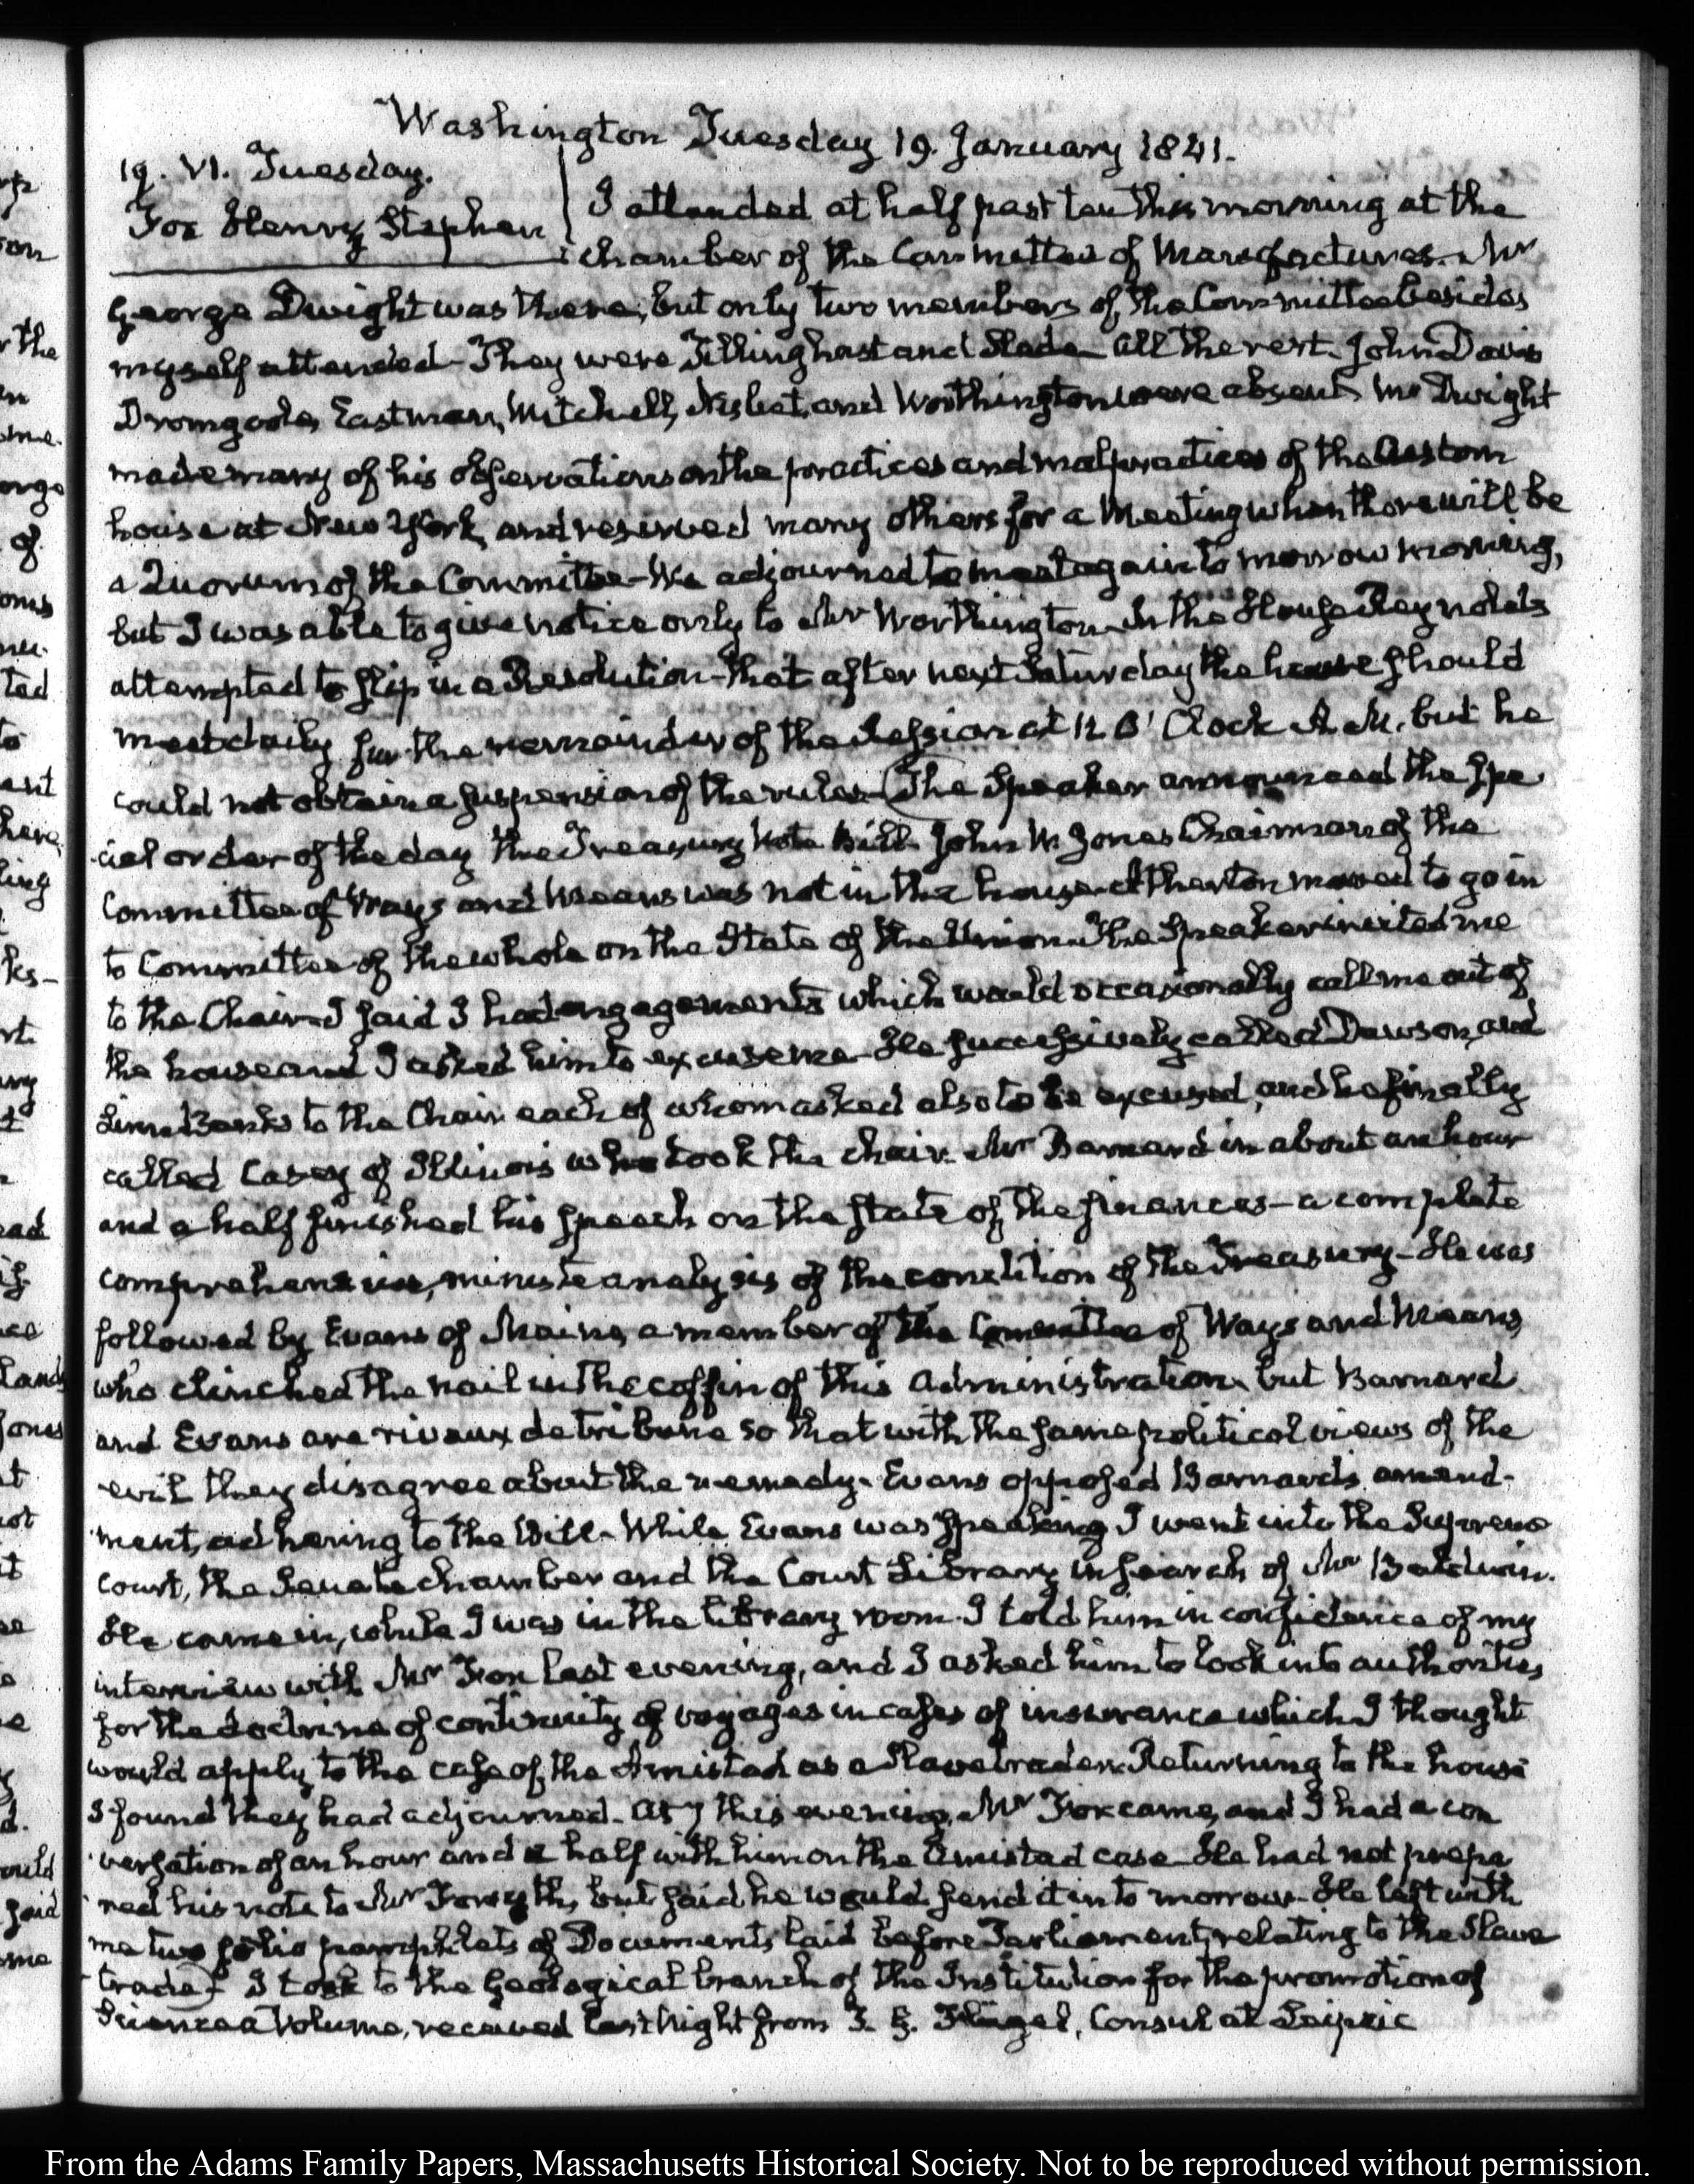 Washington Tuesday 19. January 1841.
19. VI. Tuesday.
Fox Henry Stephen
I attended at half past ten this morning at the
chamber of the Committee of Manufactures. Mr
George Dwight was there; but only two members of the Committee besides
myself attended - They were Tillinghast and Slade - All the rest - John Davis
Dromgoole, Eastman, Mitchell, Nisbet, and Worthington were absent. Mr Dwight
made many of his observations on the practices and malpractices of the Custom
house at New York, and reserved many others for a Meeting when there will be
a Quorum of the Committee - We adjourned to meet again to morrow morning,
but I was able to give notice only to Mr Worthington - In the House Reynolds
attempted to slip in a Resolution - that after next Saturday the house should
meet daily for the remainder of the Session at 12 O'Clock A.M. but he
could not obtain a suspension of the rules - (The Speaker announced the spe
cial order of the day the Treasury Note Bill. John W. Jones Chairman of the
Committee of Ways and Means was not in the house. Atherton moved to go in
to Committee of the whole on the State of the Union. The Speaker invited me
to the Chair. I said I had engagements which would occasionally call me out of
the house and I asked him to excuse me - He successively called Dawson, and
Linn Banks to the Chair each of whom asked also to be excused, and he finally
called Casey of Illinois who took the chair. Mr Barnard in about an hour
and a half finished his speech on the state of the finances - a complete
comprehensive, minute analysis of the condition of the Treasury - He was
followed by Evans of Maine, a member of the Committee of Ways and Means,
who clinched the nail in the coffin of this Administration. but Barnard
and Evans are rivaux de tribune so that with the same political views of the
evil they disagree about the remedy. Evans opposed Barnard's amend-
ment, adhering to the Bill - While Evans was speaking I went into the Supreme
court, the Senate chamber and the Court Library in search of Mr Baldwin.
He came in, while I was in the library room. I told him in confidence of my
interview with Mr Fox last evening, and I asked him to look into authorities
for the doctrine of continuity of voyages in cases of insurance which I thought
would apply to the case of the Amistad as a Slave trader. Returning to the house
I found they had adjourned. At 7 this evening, Mr Fox came, and I had a con
versation of an hour and a half with him on the Amistad case - He had not prepa
red his note to Mr Forsyth, but said he would send it in to morrow. He left with
me two folio pamphlets of Documents, laid before Parliament, relating to the Slave
trade) - I took to the Geological branch of the Institution for the promotion of
Science a Volume, received last Night from J. G. Flügel, Consul at Leipzic
From the Adams Family Papers, Massachusetts Historical Society. Not to be reproduced without permission.